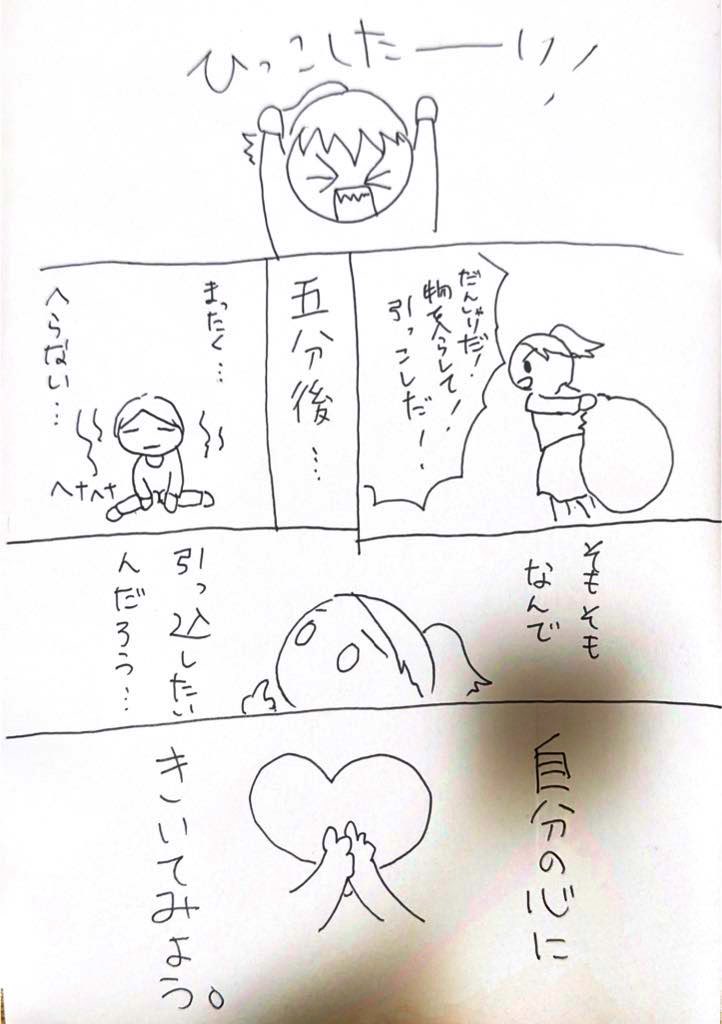 ひっこしたーーい!
だんしゃりだ!
物をへらして!
引っこしだー!
五分後…
まったく…
へらない…
へナヘナ
そもそも
なんで
引っ込したい
んだろう…
自分の心に
きいてみよう。